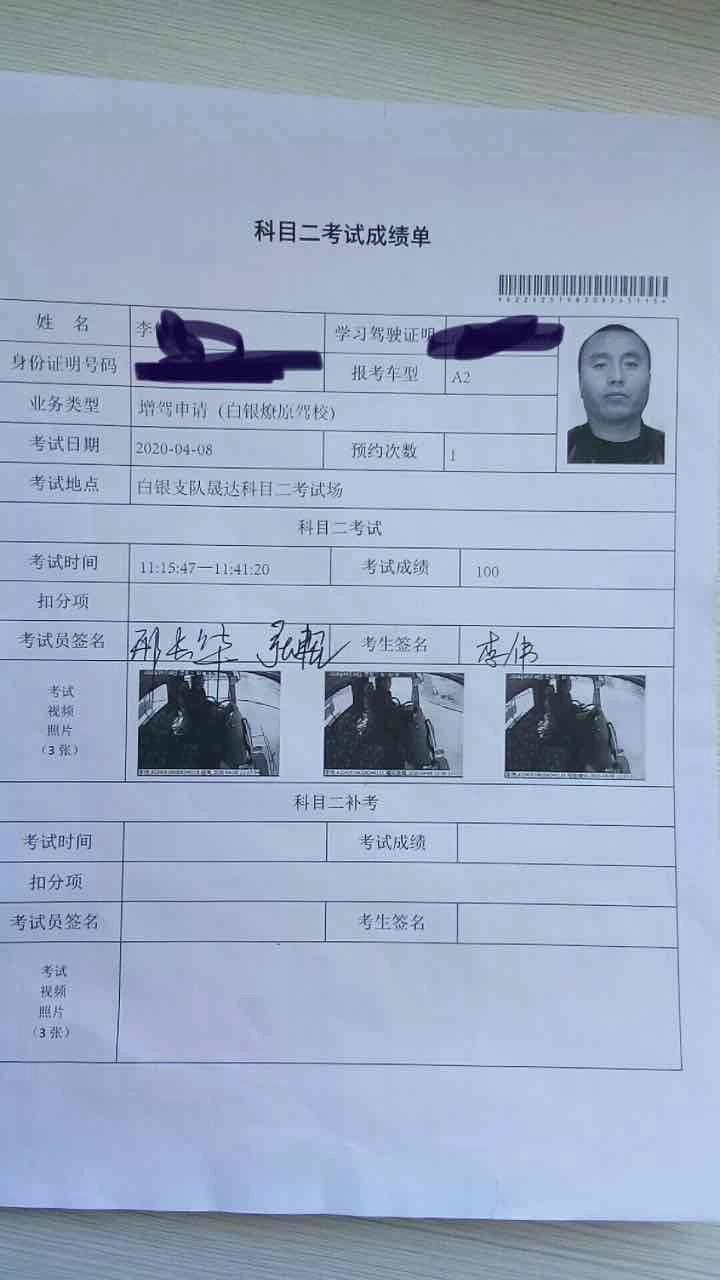 科目二考试成绩单
姓 名 李 学习驾驶证明
身份证明号码 报考车型 A2
业务类型 增驾申请（白银燎原驾校）
考试日期 2020-04-08 预约次数 1
考试地点 白银支队晟达科目二考试场
科目二考试
考试时间 11:15:47—11:41:20 考试成绩 100
扣分项
考试员签名 考生签名 李伟
考试
视频
照片
（3 张）
科目二补考
考试时间 考试成绩
扣分项
考试员签名 考生签名
考试
视频
照片
（3 张）